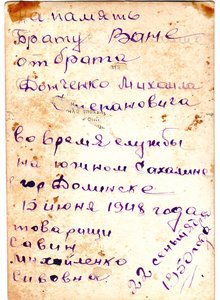 на память
Брату Ване
от брата
Донченко Михаила
Степановича
во время службы
на южном Сахалине
гор Долинске
15 июня 1948 года
товарищи
Савин
Михайленко
Сивовна
22 сентября
1950 года